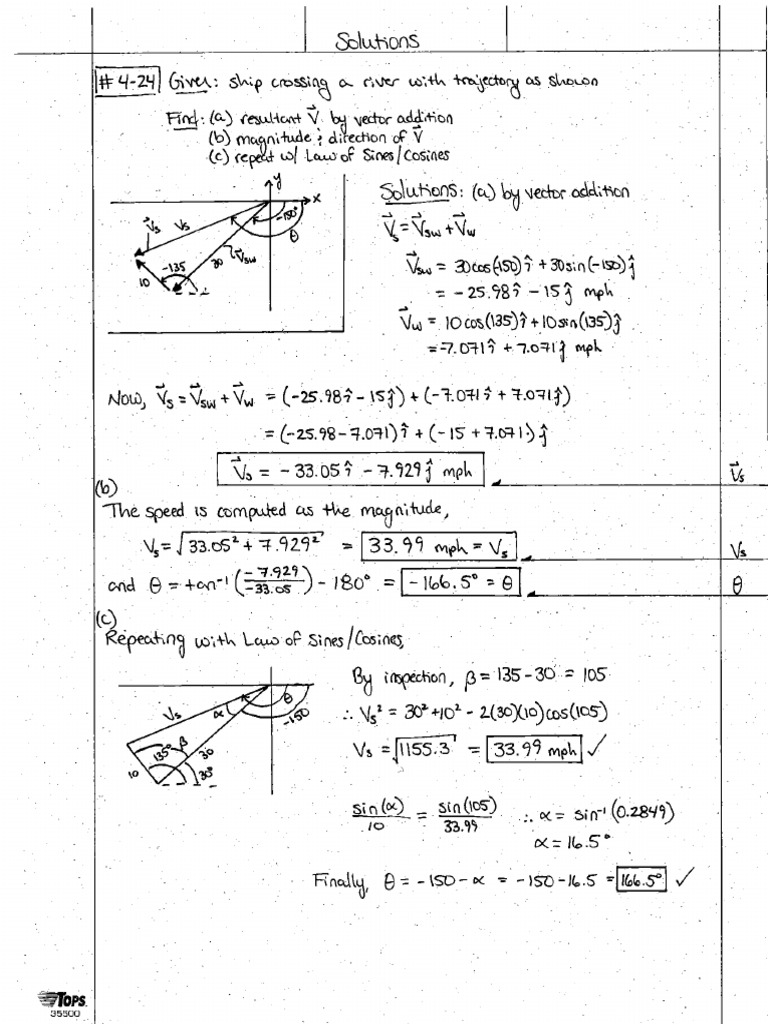 Solutions
# 4-24 Given: ship crossing a river with trajectory as shown
Find: (a) resultant V⃗ by vector addition
(b) magnitude & direction of V⃗
(c) repeat w/ Law of Sines/Cosines
y
x
V⃗s
Vs
-150°
θ
-135
30
V⃗sw
10
Solutions: (a) by vector addition
V⃗s = V⃗sw + V⃗w
V⃗sw = 30cos(-150)î + 30sin(-150)ĵ
= -25.98î - 15ĵ mph
V⃗w = 10cos(135)î + 10sin(135)ĵ
= -7.071î + 7.071ĵ mph
Now, V⃗s = V⃗sw + V⃗w = (-25.98î - 15ĵ) + (-7.071î + 7.071ĵ)
= (-25.98 - 7.071)î + (-15 + 7.071)ĵ
V⃗s = -33.05î - 7.929ĵ mph
V⃗s
(b)
The speed is computed as the magnitude,
Vs = √(33.05² + 7.929²) = 33.99 mph = Vs
Vs
and θ = tan⁻¹(-7.929/-33.05) - 180° = -166.5° = θ
θ
(c)
Repeating with Law of Sines/Cosines,
Vs
α
θ
-150
135°
β
30
10
30°
By inspection, β = 135 - 30 = 105
∴ Vs² = 30² + 10² - 2(30)(10)cos(105)
Vs = √1155.3 = 33.99 mph ✓
sin(α)/10 = sin(105)/33.99 ∴ α = sin⁻¹(0.2849)
α = 16.5°
Finally, θ = -150 - α = -150 - 16.5 = 166.5° ✓
TOPS
35500